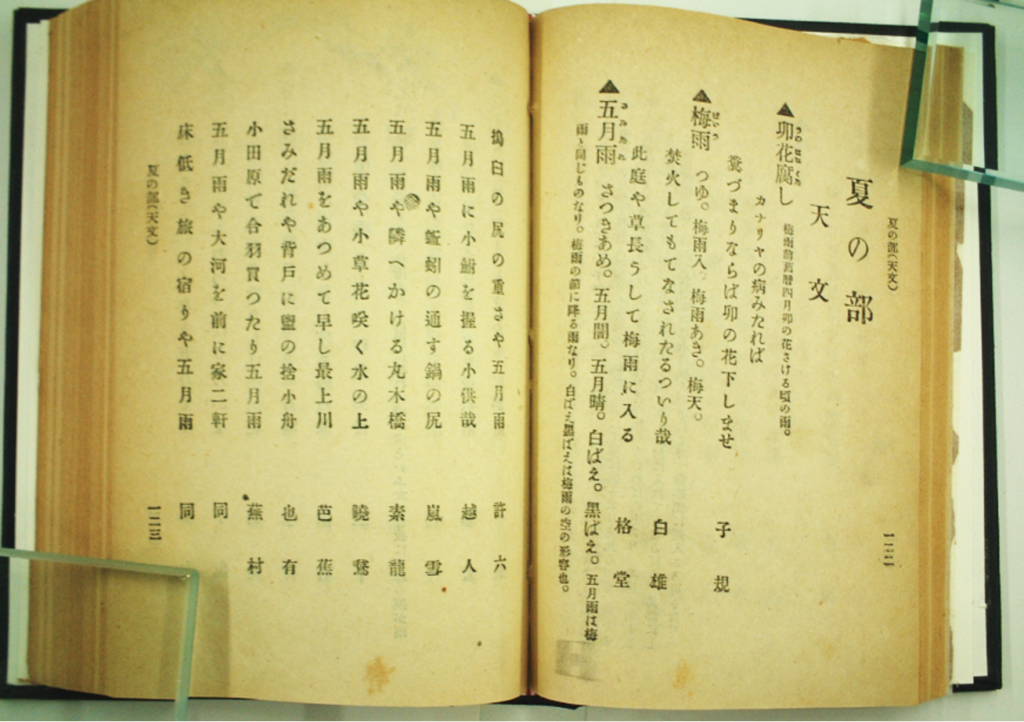 夏の部(天文)
一二二
夏の部
天文
▲卯花腐し 梅雨前舊暦四月卯の花さける頃の雨。
カナリヤの病みたれば
糞づまりならば卯の花下しませ 子規
▲梅雨 つゆ。梅雨入。梅雨あき。梅天。
焚火してもてなされたるついり哉 白雄
此庭や草長うして梅雨に入る 格堂
▲五月雨 さつきあめ。五月闇。五月晴。白ばえ。黒ばえ。五月雨は梅
雨と同じものなり。梅雨の節に降る雨なり。白ばえ黒ばえは梅雨の空の形容也。
搗臼の尻の重さや五月雨 許六
五月雨に小鮒を握る小供哉 越人
五月雨や蚯蚓の通す鍋の尻 嵐雪
五月雨や隣へかける丸木橋 素龍
五月雨や小草花咲く水の上 曉臺
五月雨をあつめて早し最上川 芭蕉
さみだれや背戸に盥の捨小舟 也有
小田原で合羽買つたり五月雨 蕪村
五月雨や大河を前に家二軒 同
床低き旅の宿りや五月雨 同
夏の部(天文)
一二三